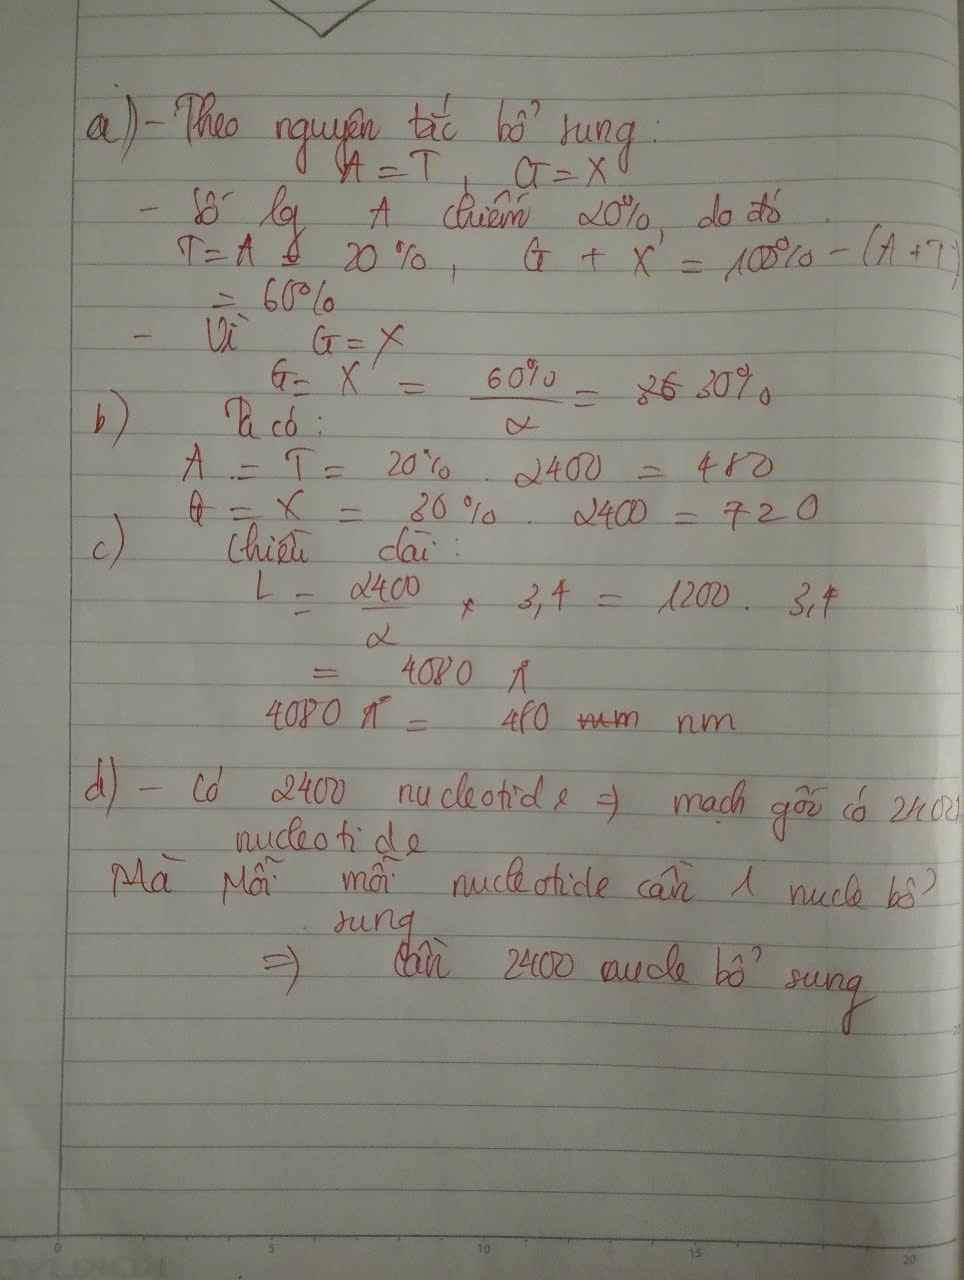 a) - Theo nguyên tắc bổ sung:
A = T, G = X
- Số lg A chiếm 20%, do đó
T = A = 20%, G + X = 100% - (A + T)
= 60%
- Vì G = X
G = X = 60%/2 = 30%
b) Ta có:
A = T = 20% . 2400 = 480
G = X = 30% . 2400 = 720
c) Chiều dài:
L = 2400/2 × 3,4 = 1200 . 3,4
= 4080 Å
4080 Å = 480 nm
d) - Có 2400 nucleotide => mạch gốc có 2400
nucleotide
Mà mỗi nucleotide cần 1 nucle bổ
sung
=> Cần 2400 nucle bổ sung
0 5 10 15 20